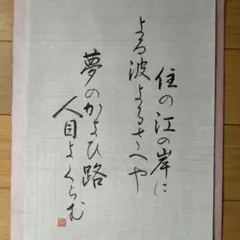 住の江の岸に
よる波よるさへや
夢のかよひ路
人目よくらむ